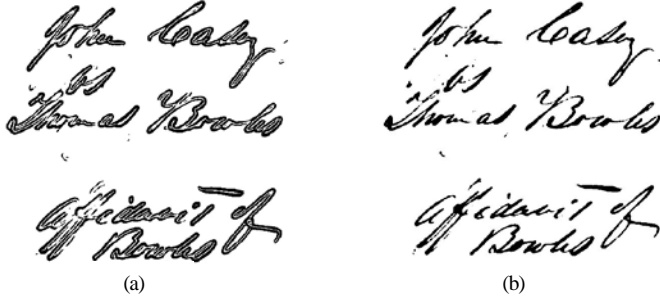 John Casey
vs
Thomas Bowles
Affidavit of
Bowles
(a)
John Casey
vs
Thomas Bowles
Affidavit of
Bowles
(b)